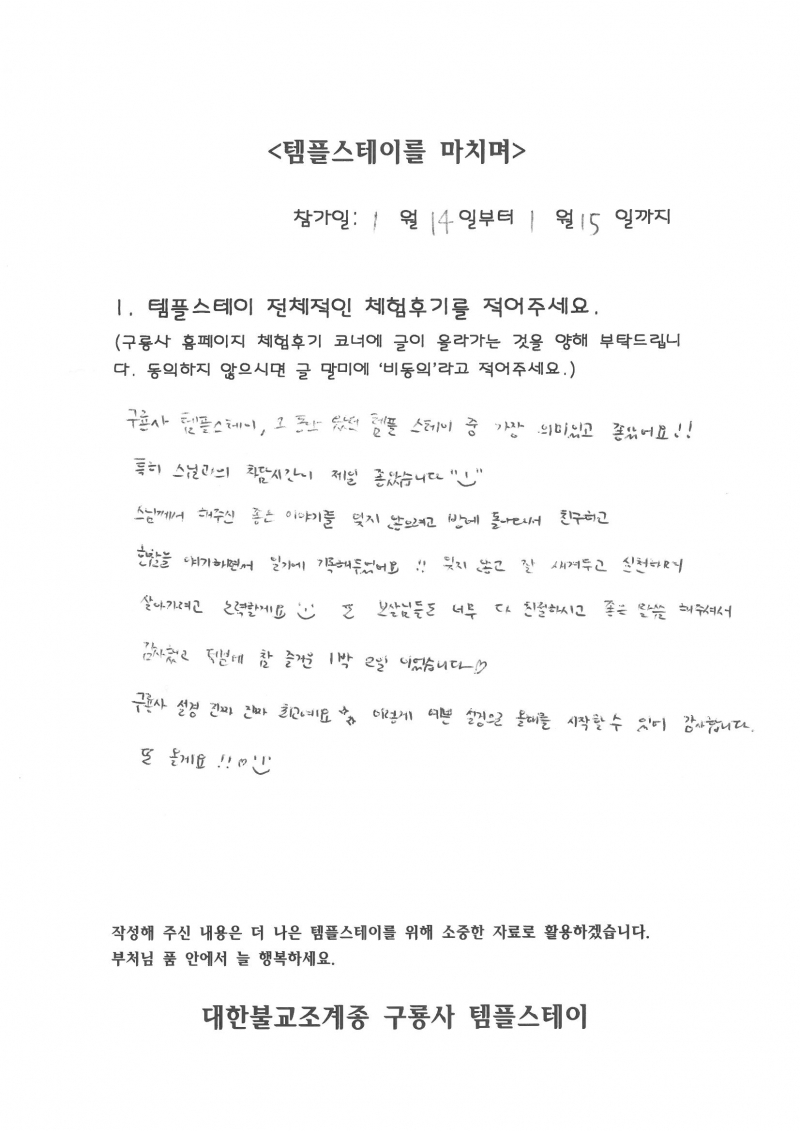 <템플스테이를 마치며>
참가일: 1 월 14일부터 1 월 15 일까지
1. 템플스테이 전체적인 체험후기를 적어주세요.
(구룡사 홈페이지 체험후기 코너에 글이 올라가는 것을 양해 부탁드립니
다. 동의하지 않으시면 글 말미에 '비동의'라고 적어주세요.)
구룡사 템플스테이, 그 동안 했던 템플 스테이 중 가장 의미있고 좋았어요!!
특히 스님과의 차담시간이 제일 좋았습니다
스님께서 해주신 좋은 이야기를 잊지 않으려고 방에 돌아와서 친구하고
한참을 얘기하면서 일기에 기록해두었어요 !! 잊지 않고 잘 새겨두고 실천하며
살아가려고 노력할게요 또 보살님들도 너무 다 친절하시고 좋은 말씀 해주셔서
감사했고 덕분에 참 즐거운 1박 2일 이었습니다♡
구룡사 설경 진짜 진짜 최고예요 이렇게 예쁜 설경으로 올해를 시작할 수 있어 감사합니다.
또 올게요 !!♡
작성해 주신 내용은 더 나은 템플스테이를 위해 소중한 자료로 활용하겠습니다.
부처님 품 안에서 늘 행복하세요.
대한불교조계종 구룡사 템플스테이